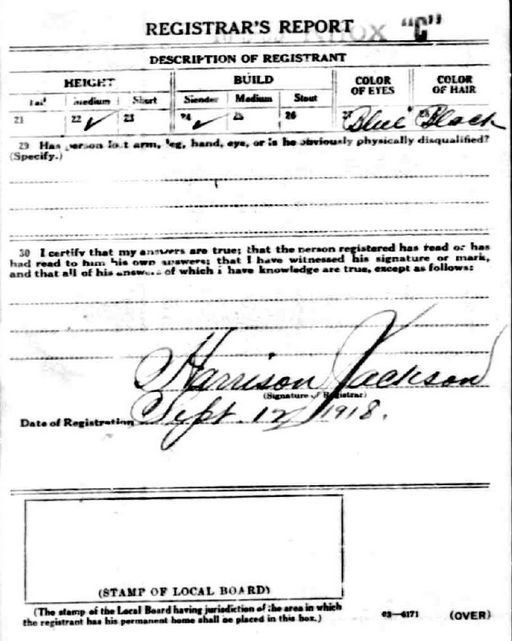 REGISTRAR'S REPORT "C"
DESCRIPTION OF REGISTRANT
HEIGHT BUILD COLOR OF EYES COLOR OF HAIR
Tall Medium Short Slender Medium Stout
21 22 ✓ 23 24 ✓ 25 26 27 Blue 28 Black
29 Has person lost arm, leg, hand, eye, or is he obviously physically disqualified?
(Specify.)
30 I certify that my answers are true; that the person registered has read or has
had read to him his own answers; that I have witnessed his signature or mark,
and that all of his answers of which I have knowledge are true, except as follows:
Harrison Jackson
(Signature of Registrar)
Date of Registration Sept. 12, 1918.
(STAMP OF LOCAL BOARD)
(The stamp of the Local Board having jurisdiction of the area in which
the registrant has his permanent home shall be placed in this box.)
03—6171 (OVER)